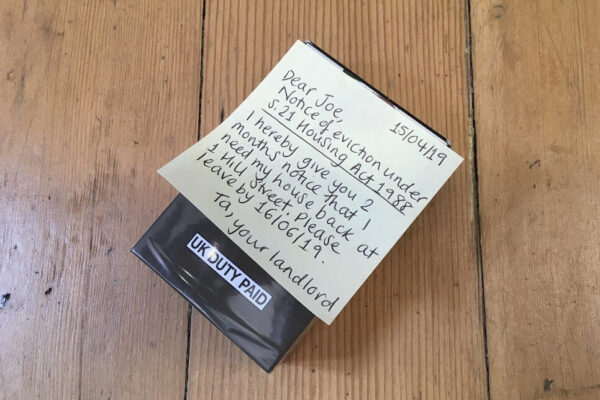 15/04/19
Dear Joe,
Notice of eviction under
S.21 Housing Act 1988
I hereby give you 2
months notice that I
need my house back at
1 Hill Street. Please
leave by 16/06/19.
Ta, your landlord
UK DUTY PAID